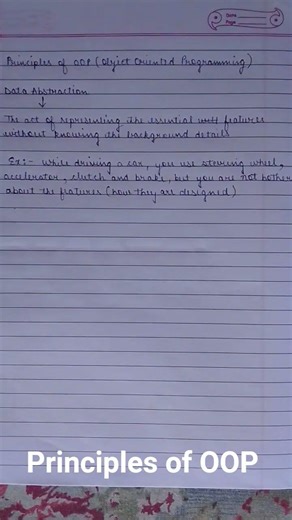 Date
Page
Principles of OOP (Object Oriented Programming)
Data Abstraction
↓
The act of representing the essential features
without knowing the background details
Ex:- While driving a car, you use steering wheel,
accelerator, clutch and brake, but you are not bother
about the features (how they are designed)
Principles of OOP